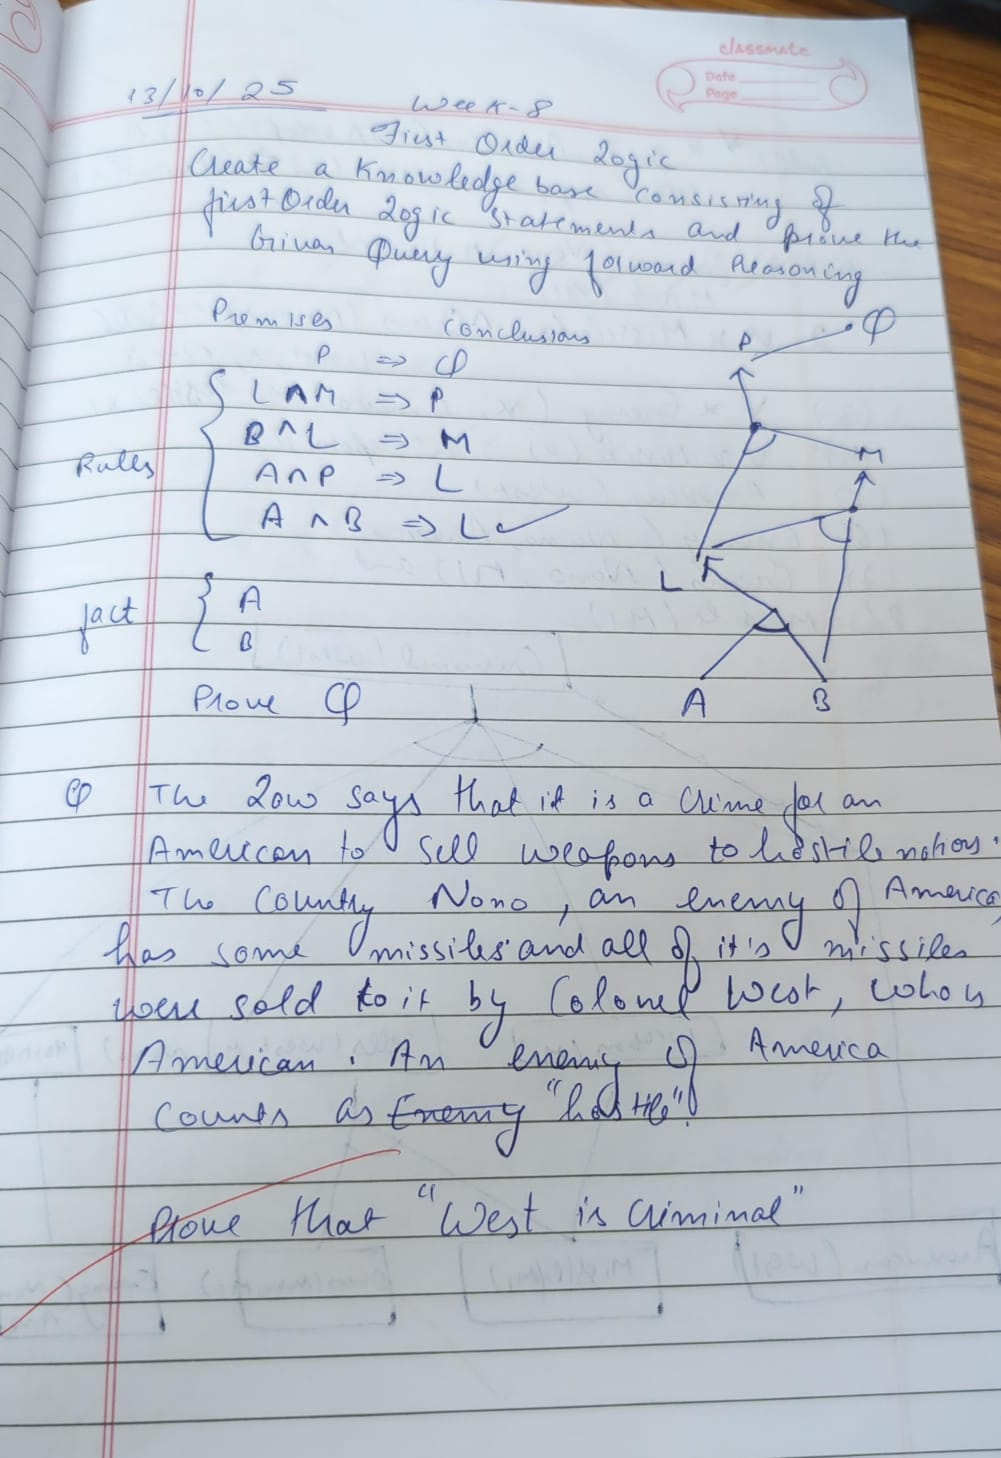 classmate
Date
Page
13/10/25
Week-8
First Order Logic
Create a Knowledge base consisting of
first Order Logic statements and prove the
Given Query using forward Reasoning
Premises conclusions
P => Q
L ∧ M => P
B ∧ L => M
Rules A ∧ P => L
A ∧ B => L ✓
fact { A
B
Prove Q
Q
P
M
L
A B
Q The Low says that it is a crime for an
American to sell weapons to hostile nations.
The Country Nono, an enemy of America,
has some missiles and all of it's missiles
were sold to it by Colonel West, who is
American. An enemy of America
Counts as Enemy "hostile".
Prove that "West is Criminal"